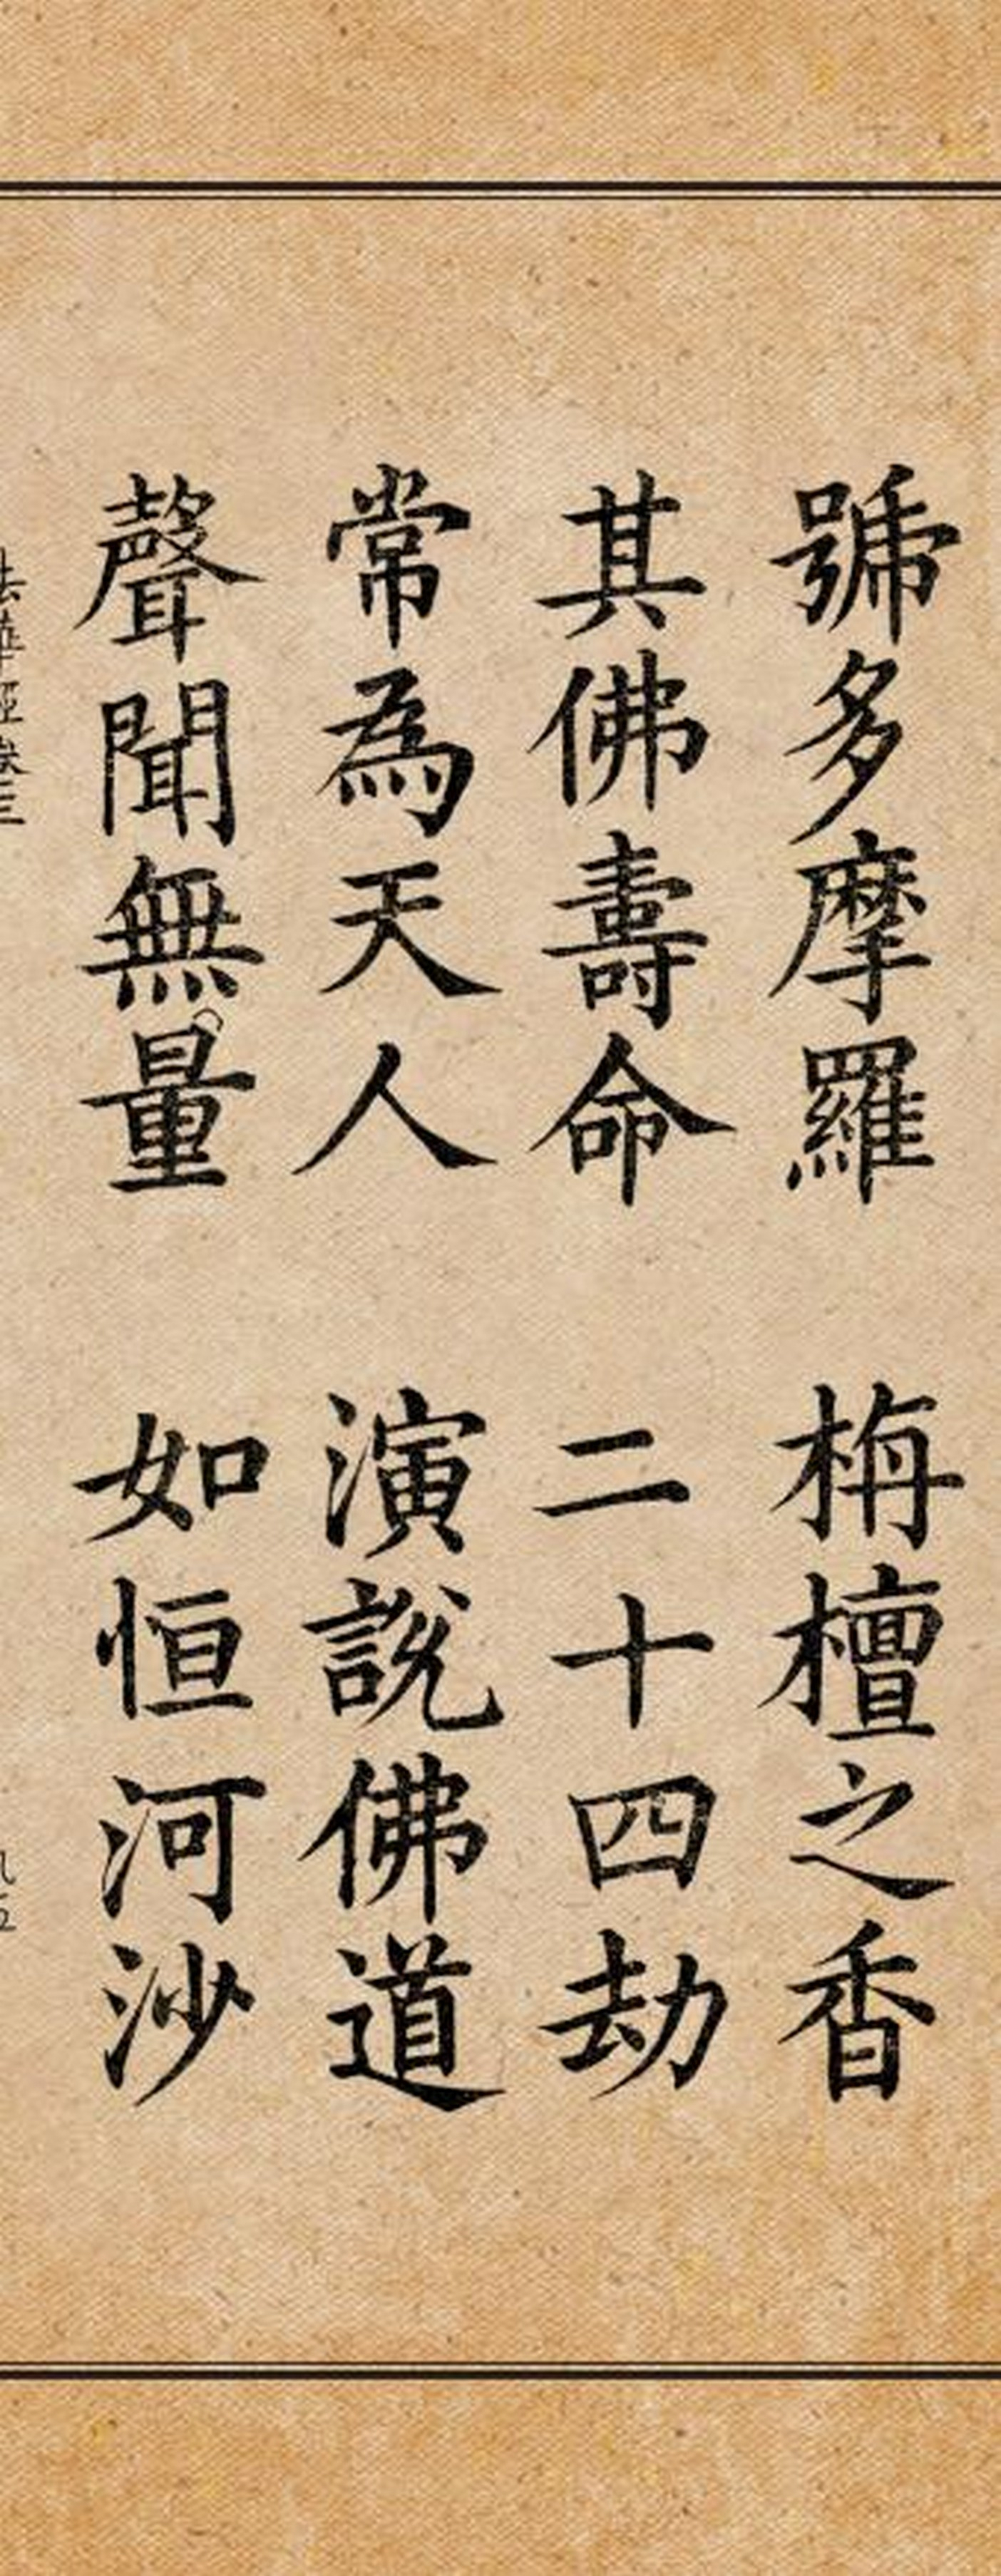 號多摩羅 栴檀之香
其佛壽命 二十四劫
常為天人 演說佛道
聲聞無量 如恒河沙
法華經卷三 九五